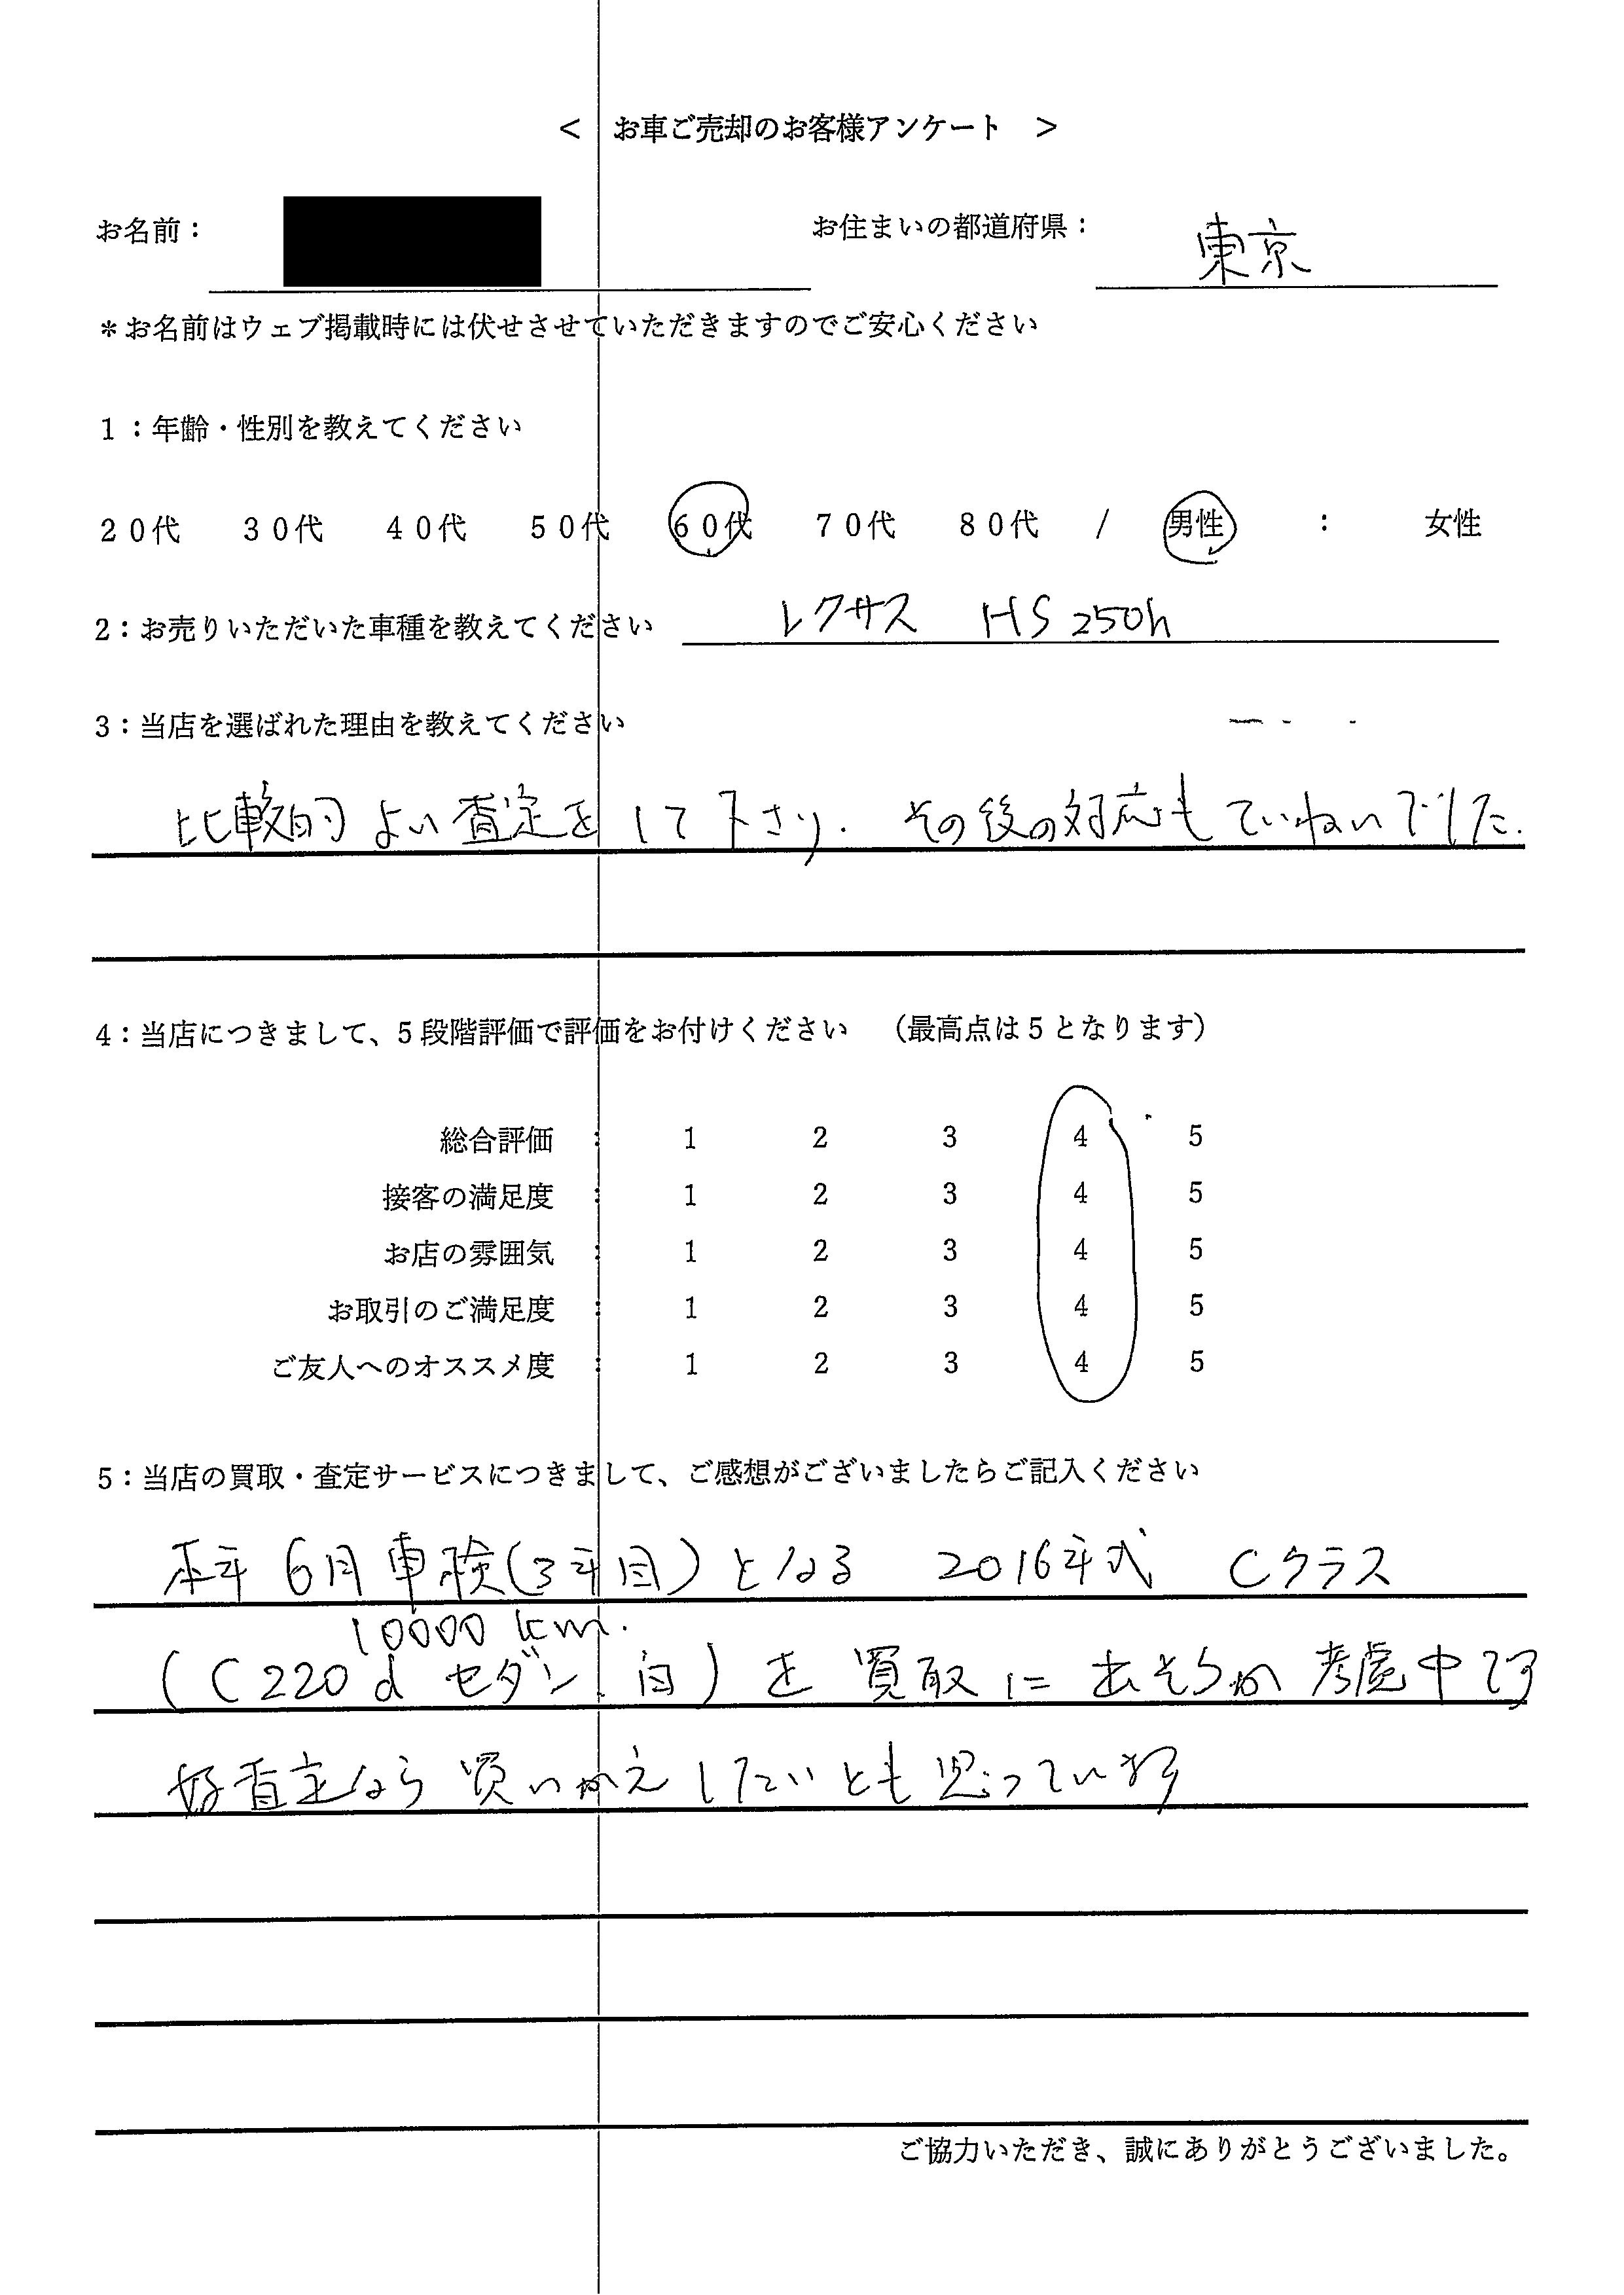 < お車ご売却のお客様アンケート >
お名前： お住まいの都道府県： 東京
＊お名前はウェブ掲載時には伏せさせていただきますのでご安心ください
1：年齢・性別を教えてください
２０代 ３０代 ４０代 ５０代 ６０代 ７０代 ８０代 / 男性 ： 女性
2：お売りいただいた車種を教えてください レクサス HS 250h
3：当店を選ばれた理由を教えてください
比較的よい査定をして下さり. その後の対応もていねいでした.
4：当店につきまして、5段階評価で評価をお付けください （最高点は5となります）
総合評価 ： 1 2 3 4 5
接客の満足度 ： 1 2 3 4 5
お店の雰囲気 ： 1 2 3 4 5
お取引のご満足度 ： 1 2 3 4 5
ご友人へのオススメ度 ： 1 2 3 4 5
5：当店の買取・査定サービスにつきまして、ご感想がございましたらご記入ください
本年6月車検(3年目)となる 2016年式 Cクラス
10000 km.
(C220d セダン. 白)を買取に出そうか考慮中です
好査定なら買いかえしたいとも思っています
ご協力いただき、誠にありがとうございました。